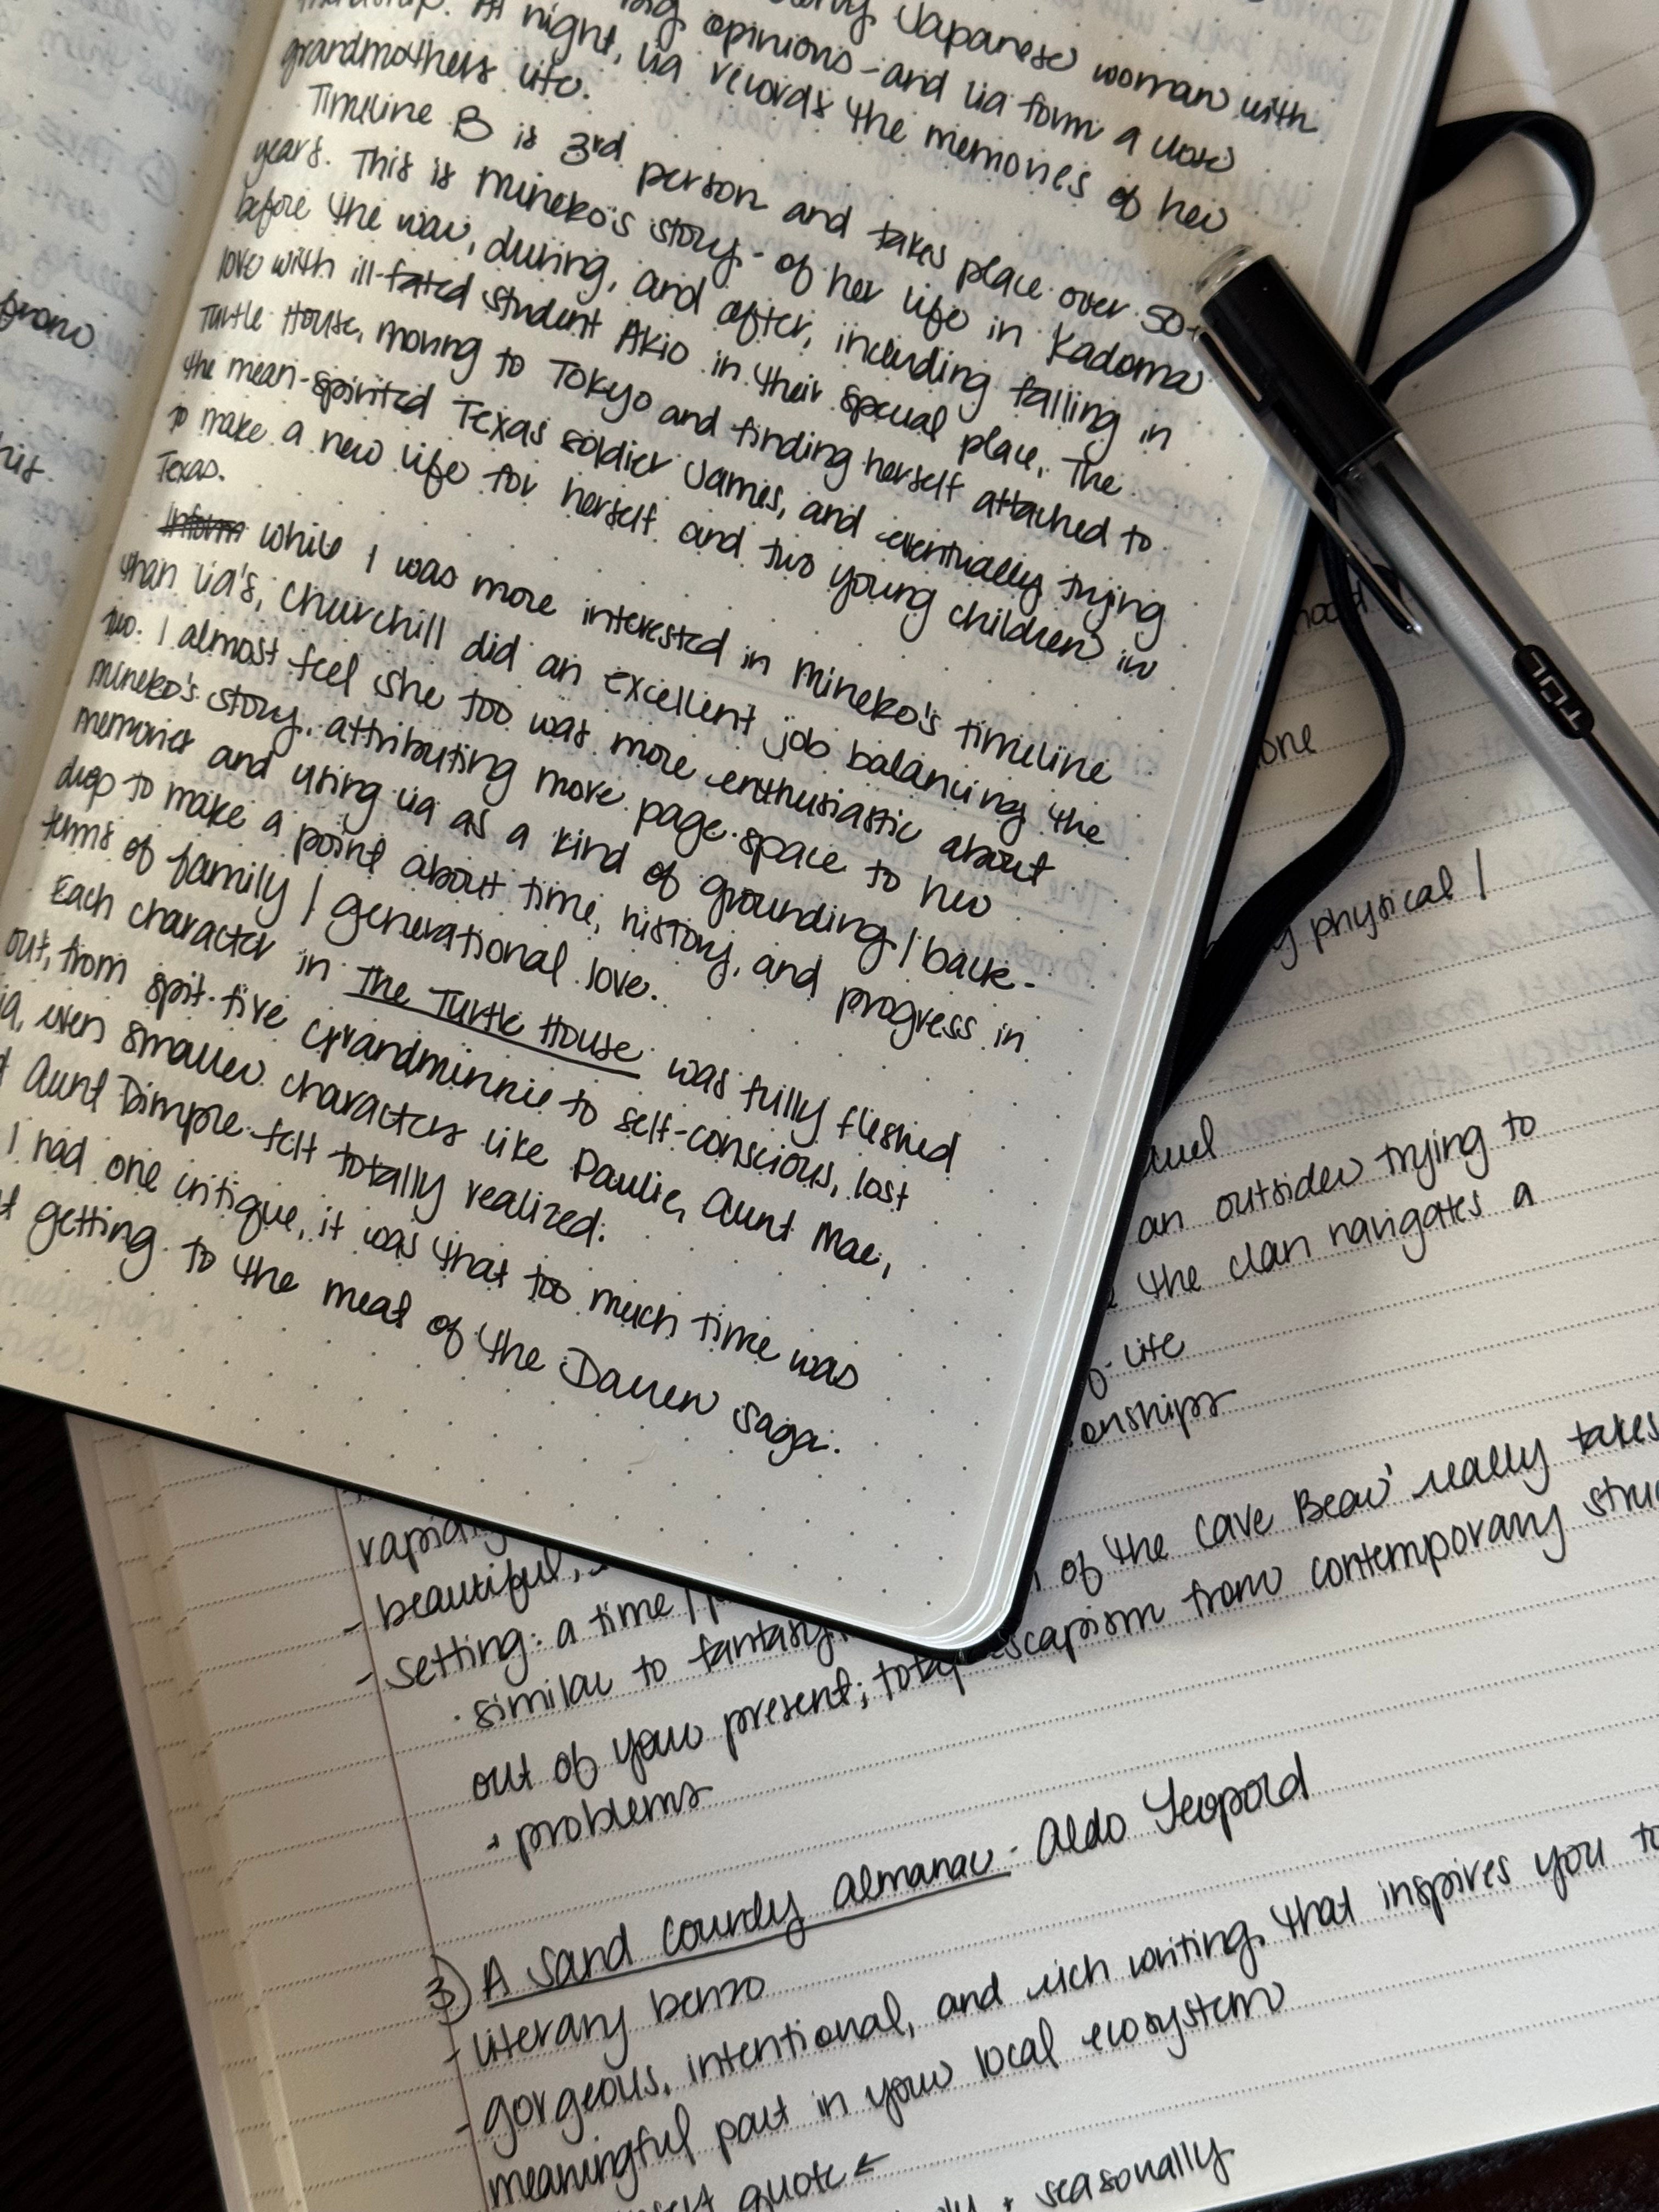 Japanese woman with
opinions - and Lia form a close
friendship. At night, Lia records the memories of her
grandmothers life.
Timeline B is 3rd person and takes place over 50+
years. This is Mineko's story - of her life in Kadoma
before the war, during, and after, including falling in
love with ill-fated student Akio in their special place, The
Turtle House, moving to Tokyo and finding herself attached to
the mean-spirited Texas soldier James, and eventually trying
to make a new life for herself and two young children in
Texas.
Inform While I was more interested in Mineko's timeline
than Lia's, Churchill did an excellent job balancing the
two. I almost feel she too was more enthusiastic about
Mineko's story, attributing more page space to her
memories and using Lia as a kind of grounding / back-
drop to make a point about time, history, and progress in
terms of family / generational love.
Each character in The Turtle House was fully fleshed
out, from spit-fire Grandminnie to self-conscious, lost
even smaller characters like Paulie, Aunt Mae,
Aunt Dimple felt totally realized.
I had one critique, it was that too much time was
getting to the meat of the Darren saga.
promo
TUL
one
physical /
an outsider trying to
the clan navigates a
of life
of the Cave Bear' really takes
rapidly
- beautiful,
- setting: a time /
· similar to fantasy
out of your present; total escapism from contemporary
+ problems
3) A Sand County Almanac - Aldo Leopold
- literary benzo
- gorgeous, intentional, and rich writing that inspires you to
meaningful part in your local ecosystem
quote ←
+ seasonally